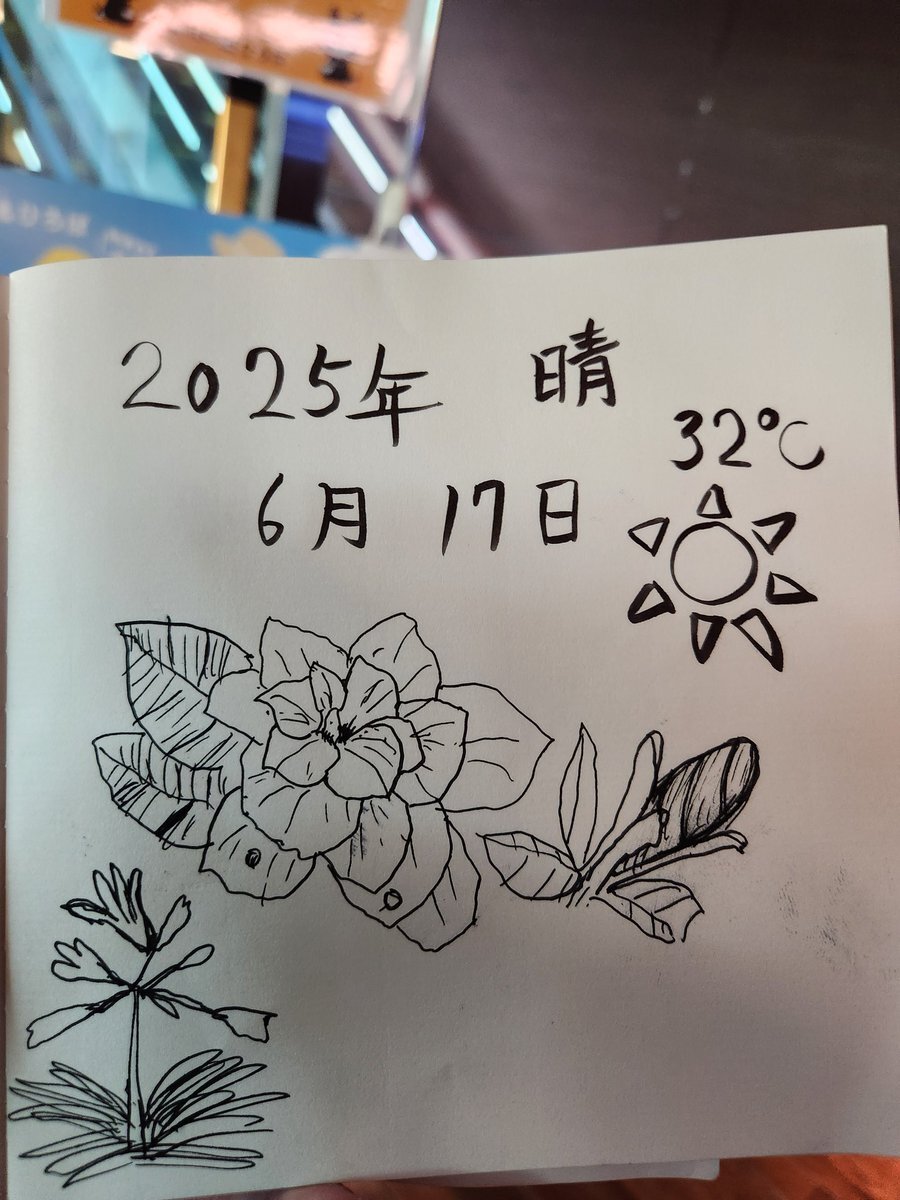 2025年 晴
32℃
6月 17日